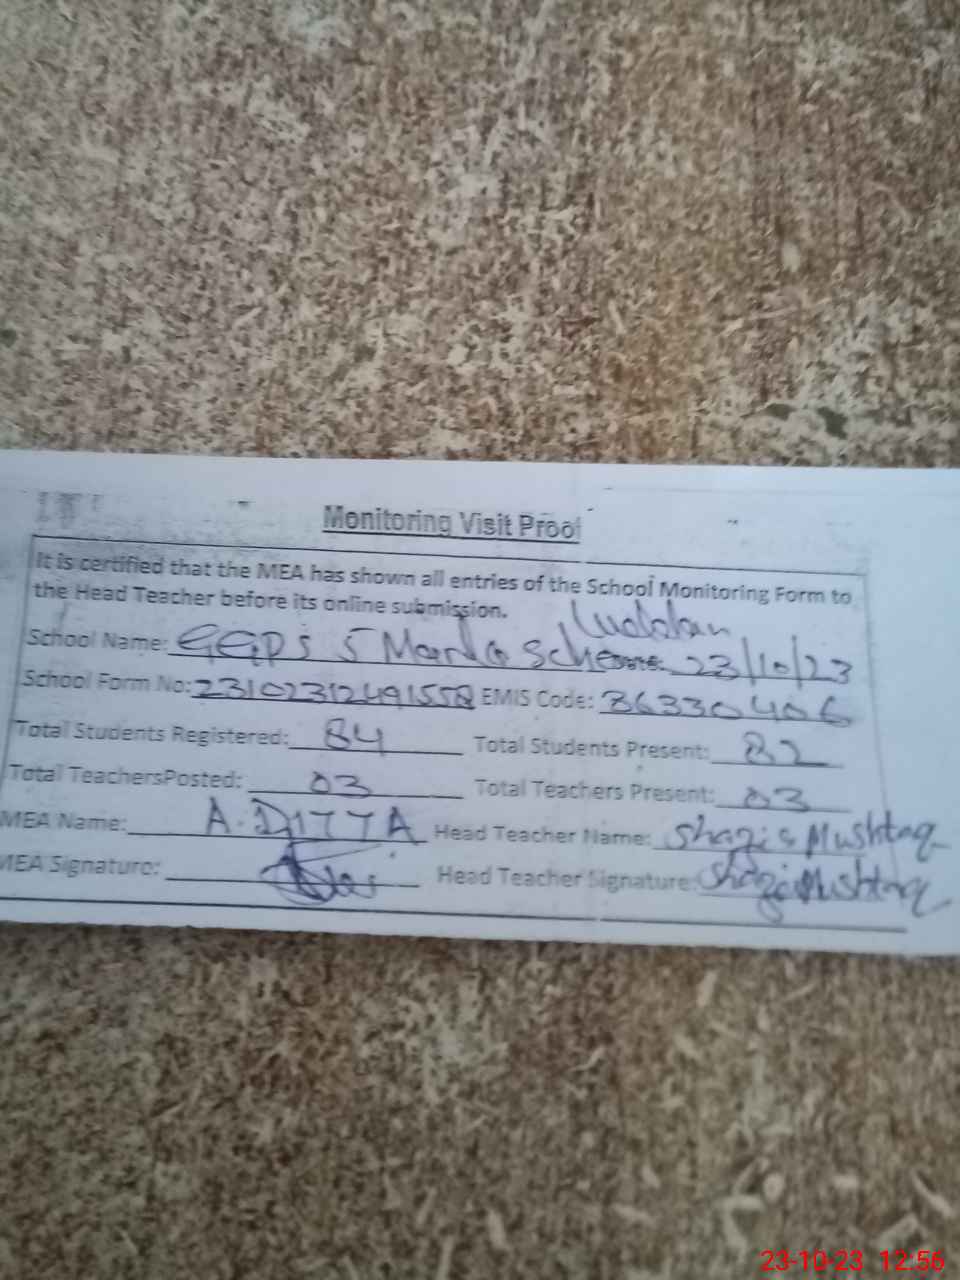 Monitoring Visit Proof
It is certified that the MEA has shown all entries of the School Monitoring Form to
the Head Teacher before its online submission.
Luddan
School Name: GGPS 5 Marla Scheme 23/10/23
School Form No: 23102312491558 EMIS Code: 36330406
Total Students Registered: 84 Total Students Present: 82
Total TeachersPosted: 03 Total Teachers Present: 03
MEA Name: A.DITTA Head Teacher Name: Shazia Mushtaq
MEA Signature: Head Teacher Signature: Shazia Mushtaq
23-10-23 12:56